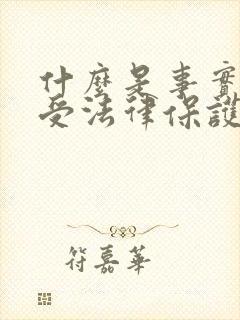 什麼是事實
受法律保護
符嘉華